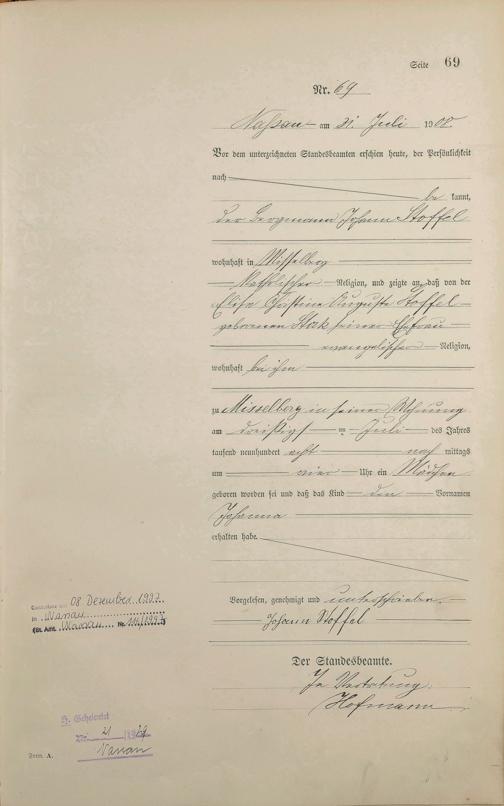 Seite 69
Nr. 69
Nassau am 31. Juli 1908.
Vor dem unterzeichneten Standesbeamten erschien heute, der Persönlichkeit
nach
be kannt,
der Bergmann Johann Stoffel
wohnhaft in Misselberg
katholischer Religion, und zeigte an, daß von der
Christine Auguste Stoffel
geborenen seiner Ehefrau
evangelischer Religion,
wohnhaft bei ihm
zu Misselberg in seiner Wohnung
am dreißigsten Juli des Jahres
tausend neunhundert acht nach mittags
um vier Uhr ein Mädchen
geboren worden sei und daß das Kind den Vornamen
Johanna
erhalten habe.
Vorgelesen, genehmigt und unterschrieben.
Johann Stoffel
Der Standesbeamte.
In Vertretung
Hofmann
08 Dezember 1997
in Nassau
(St. Amt. Nassau Nr.
Nr. 21
Nassau
Form. A.